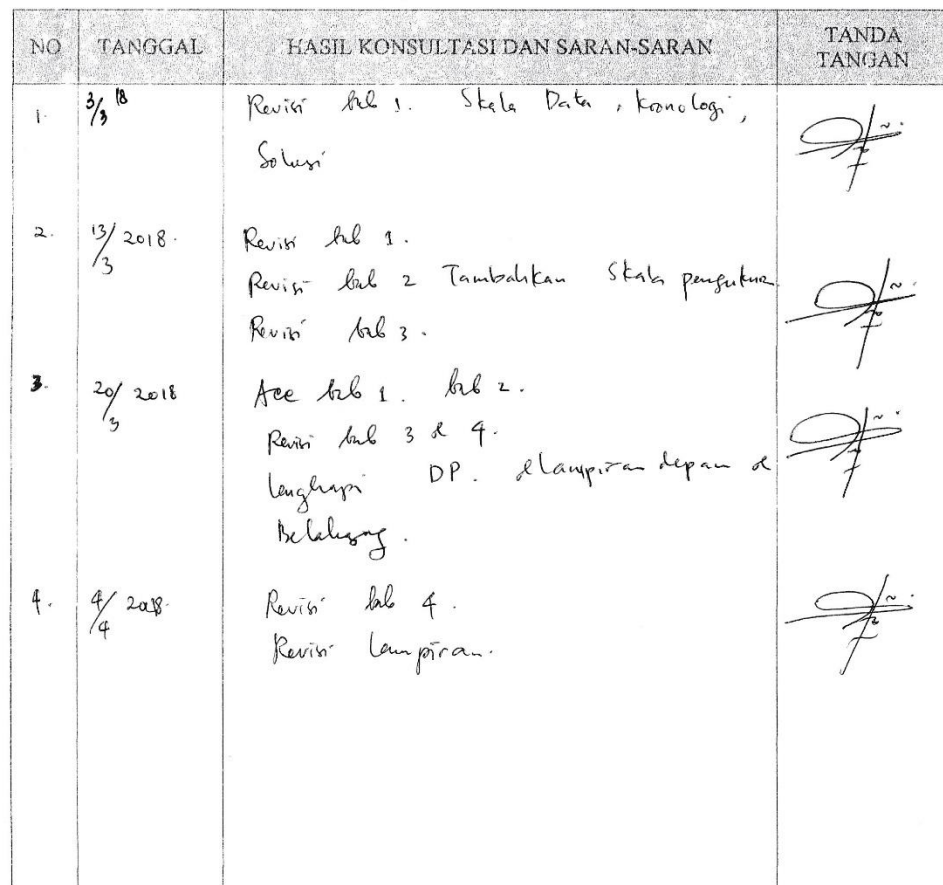 NO TANGGAL HASIL KONSULTASI DAN SARAN-SARAN TANDA TANGAN
1. 3/3 18 Revisi bab 1. Skala Data, kronologi,
Solusi
2. 13/3 2018. Revisi bab 1.
Revisi bab 2 Tambahkan Skala pengukuran
Revisi bab 3.
3. 20/3 2018 Acc bab 1. bab 2.
Revisi bab 3 & 4.
lengkapi DP. & lampiran depan &
Belakang.
4. 4/4 2018. Revisi bab 4.
Revisi lampiran.